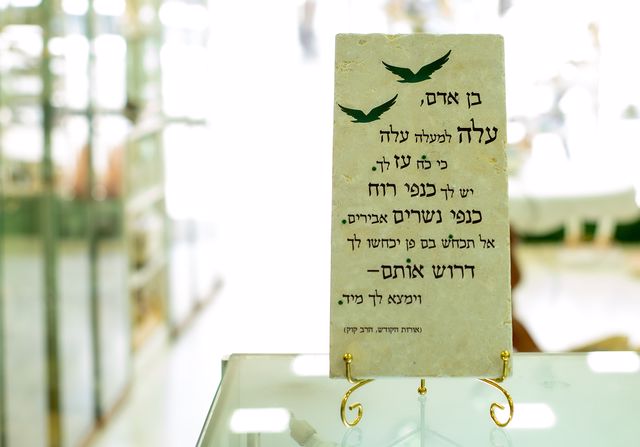 בן אדם,
עלה למעלה עלה
כי כח עז לך.
יש לך כנפי רוח
כנפי נשרים אבירים.
אל תכחש בם פן יכחשו לך
דרוש אותם–
וימצא לך מיד.
(אורות הקודש, הרב קוק)